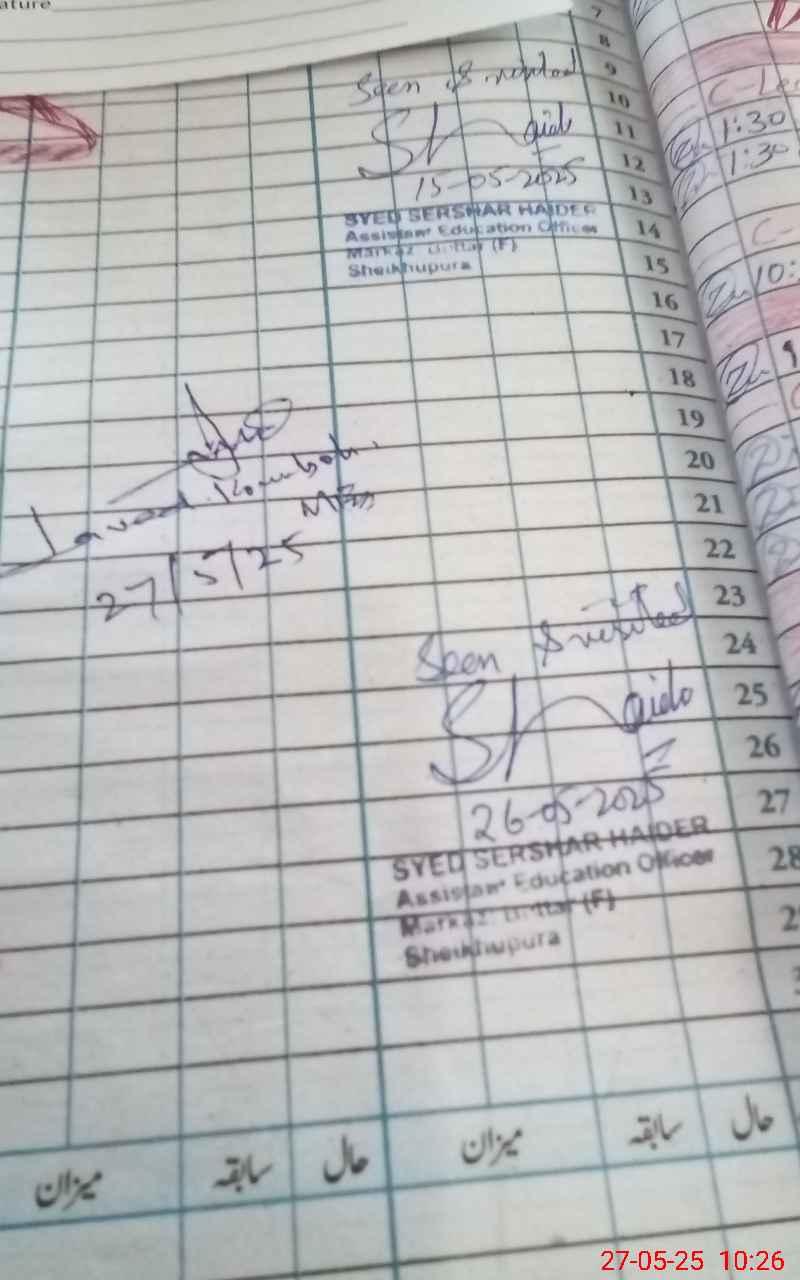 ature
7
8
9
10
11
12
13
14
15
16
17
18
19
20
21
22
23
24
25
26
27
28
Seen & visited
15-05-2025
SYED SERSHAR HAIDER
Assistant Education Officer
Markaz (F)
Sheikhupura
C-Lea
1:30
1:30
C-
10:
Javed
27/5/25
Seen & visited
26-05-2025
SYED SERSHAR HAIDER
Assistant Education Officer
Markaz (F)
Sheikhupura
حال سابقہ میزان حال سابقہ میزان
27-05-25 10:26